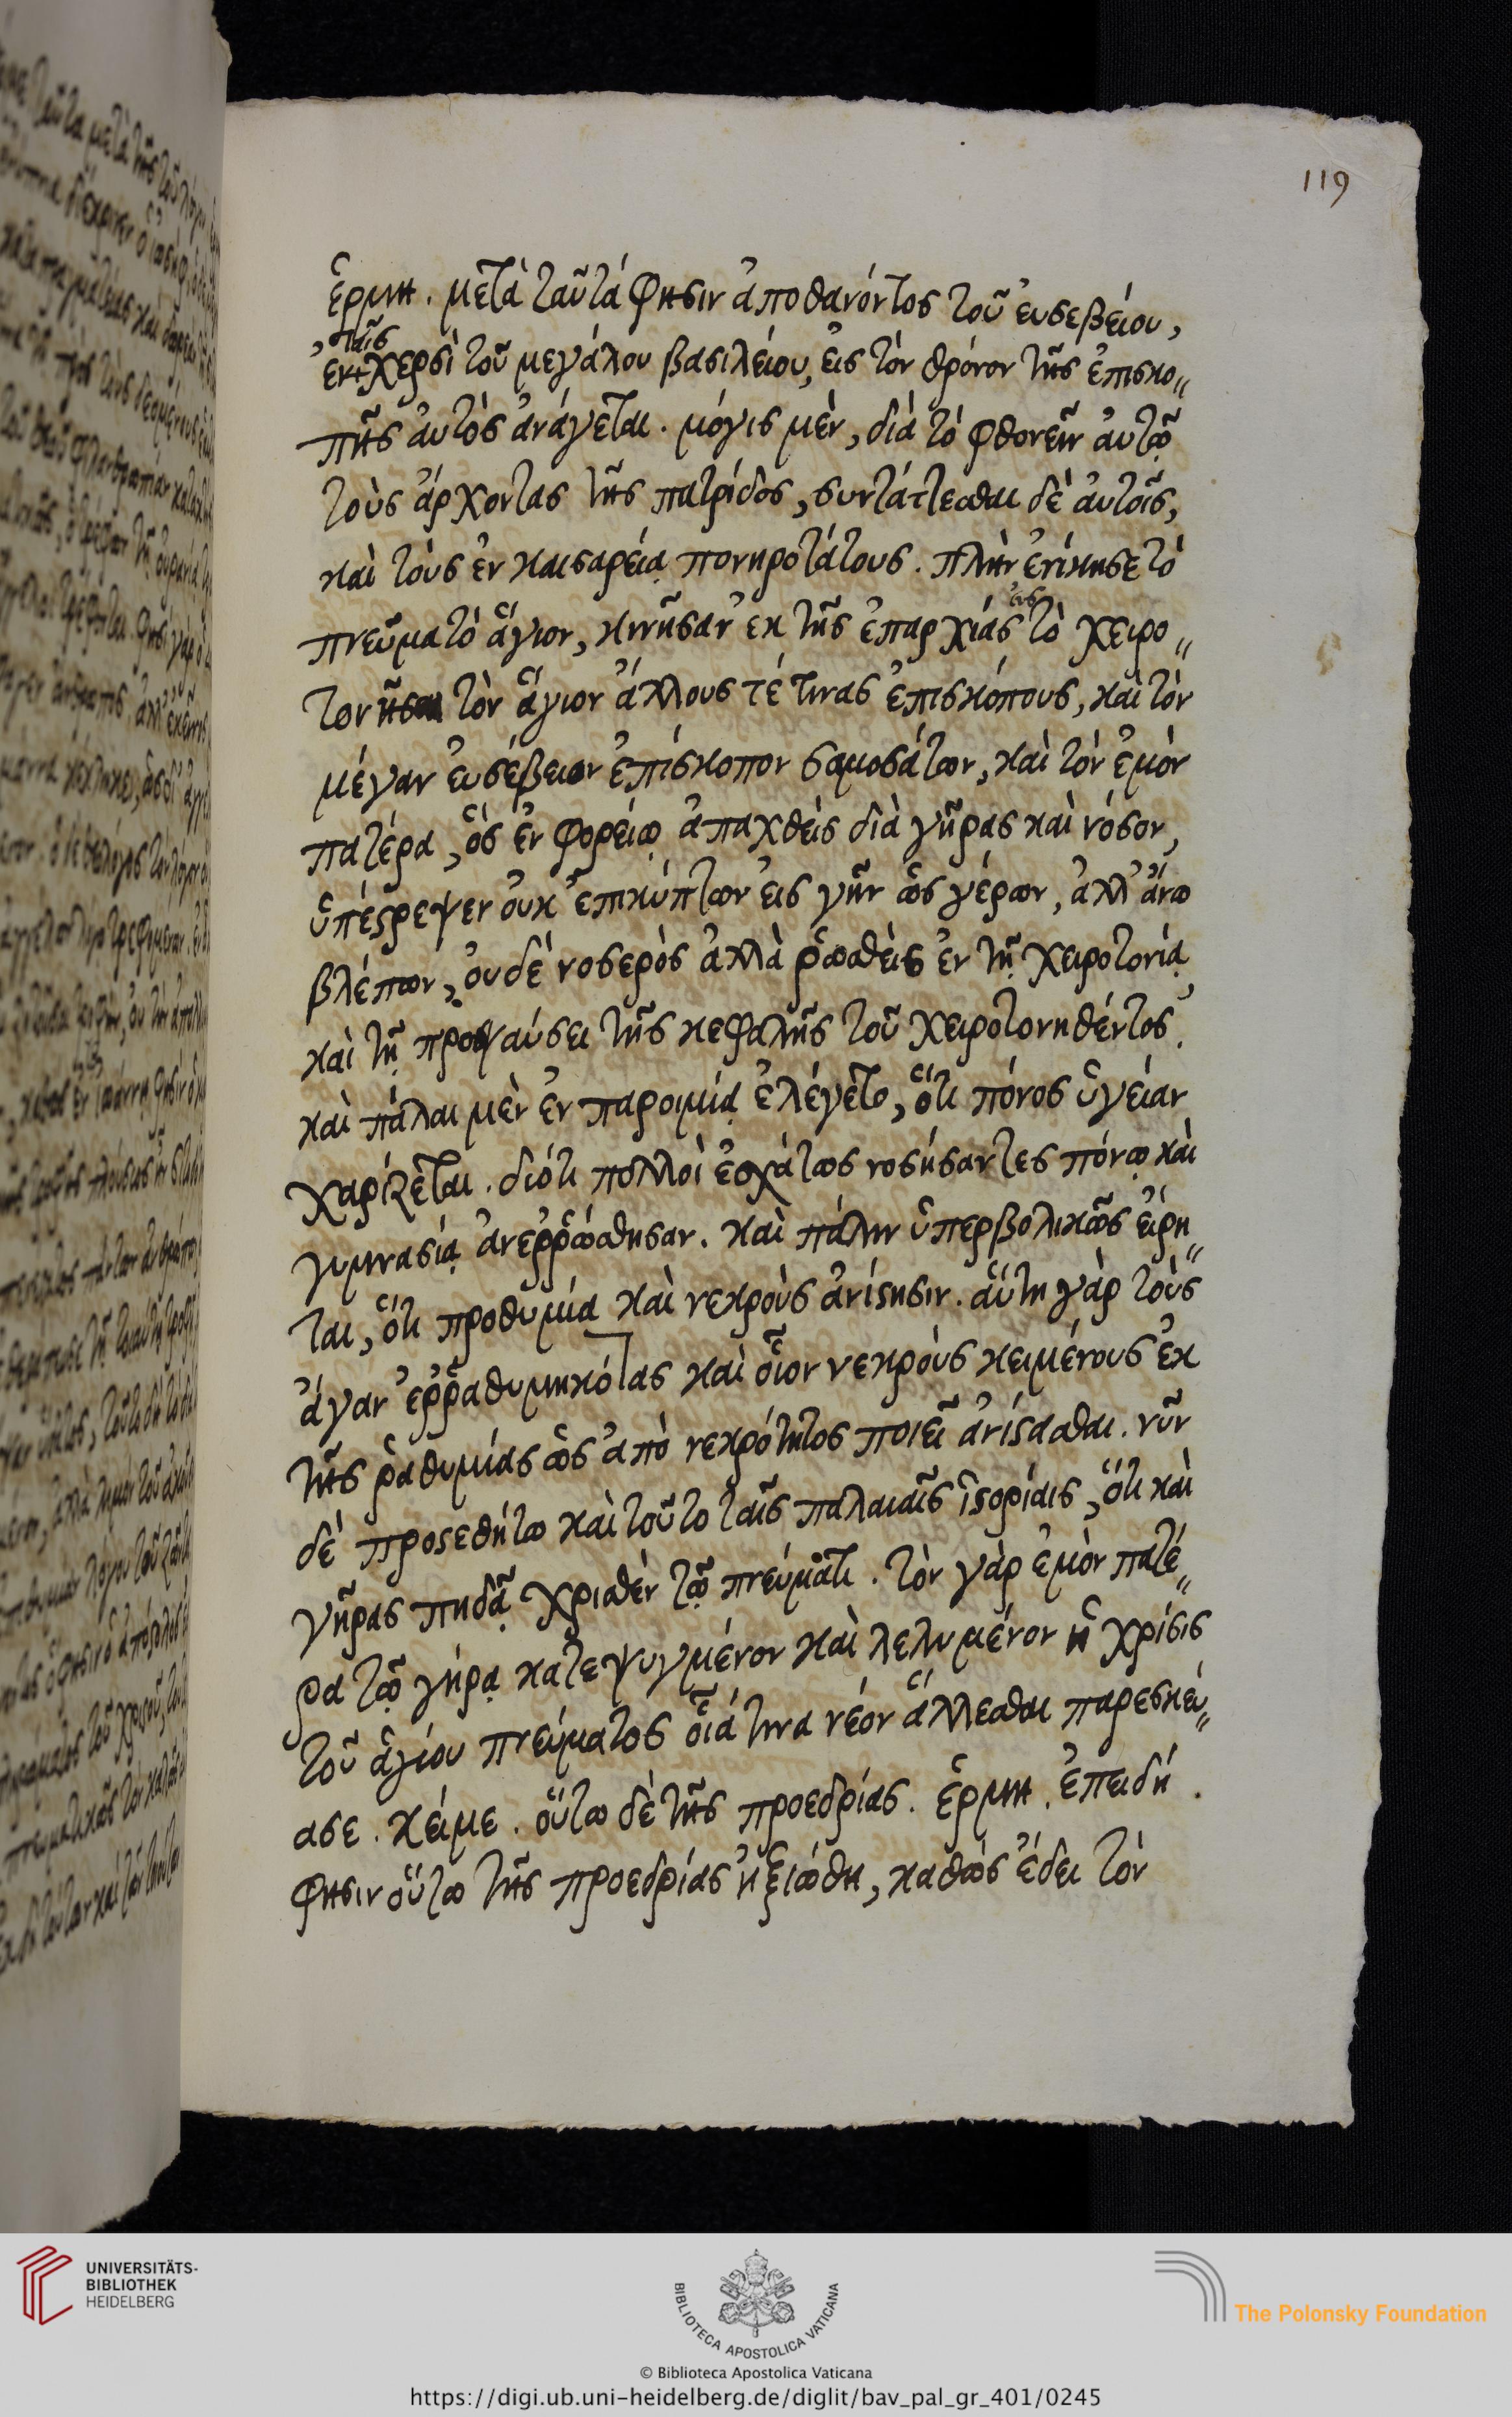 119
ἑρμη. μετὰ ταῦτά φησιν ἀποθανόντος τοῦ ἐυσεβείου,
ταῖς
ἐν χερσὶ τοῦ μεγάλου βασιλείου, ἐις τὸν θρόνον τῆς ἐπισκο„
πῆς ἀυτὸς ἀνάγεται. μόγις μὲν, διὰ τὸ φθονεῖν ἀυτῷ
τοὺς ἄρχοντας τῆς πατρίδος, συντάττεσθαι δὲ ἀυτοῖς,
καὶ τοὺς ἐν καισαρείᾳ πονηροτάτους. πλὴν ἐνίκησε τὸ
πνεῦμα τὸ ἅγιον, κινῆσαν ἐκ τῆς ἐπαρχίας ἐις τὸ χειρο„
τονῆσαι τὸν ἅγιον ἄλλους τέ τινας ἐπισκόπους, καὶ τὸν
μέγαν ἐυσέβειον ἐπίσκοπον σαμοσάτων, καὶ τὸν ἐμὸν
πατέρα, ὃς ἐν φορείῳ ἀπαχθεὶς διὰ γῆρας καὶ νόσον,
ὑπέστρεψεν ὀυκ ἐπικύπτων ἐις γῆν ὡς γέρων, ἀλλ' ἄνω
βλέπων, ὀυδὲ νοσερὸς ἀλλὰ ῥωσθεὶς ἐν τῇ χειροτονίᾳ,
καὶ τῇ προσψαύσει τῆς κεφαλῆς τοῦ χειροτονηθέντος.
καὶ πάλαι μὲν ἐν παροιμίᾳ ἐλέγετο, ὅτι πόνος ὑγείαν
χαρίζεται. διότι πολλοὶ ἐσχάτως νοσήσαντες πόνῳ καὶ
γυμνασίᾳ ἀνεῤῥώσθησαν. καὶ πάλιν ὑπερβολικῶς ἐίρη„
ται, ὅτι προθυμία καὶ νεκροὺς ἀνίστησιν. ἅυτη γὰρ τοὺς
ἄγαν ἐῤῥαθυμηκότας καὶ οἷον νεκροὺς κειμένους ἐκ
τῆς ῥαθυμίας ὡς ἀπὸ νεκρότητος ποιεῖ ἀνίστασθαι. νῦν
δὲ προστεθήτω καὶ τοῦτο ταῖς παλαιαῖς ἱστορίαις, ὅτι καὶ
γῆρας πηδᾷ χρισθὲν τῷ πνεύματι. τὸν γὰρ ἐμὸν πατέ„
ρα τῷ γήρᾳ κατεψυγμένον καὶ λελυμένον ἡ χρίσις
τοῦ ἁγίου πνεύματος οἷά τινα νέον ἅλλεσθαι παρεσκεύ„
ασε. κείμε. ὅυτω δὲ τῆς προεδρίας. ἑρμη. ἐπειδή
φησιν ὅυτω τῆς προεδρίας ἠξιώθη, καθὼς ἔδει τὸν
UNIVERSITÄTS-
BIBLIOTHEK
HEIDELBERG
BIBLIOTECA APOSTOLICA VATICANA
The Polonsky Foundation
© Biblioteca Apostolica Vaticana
https://digi.ub.uni-heidelberg.de/diglit/bav_pal_gr_401/0245